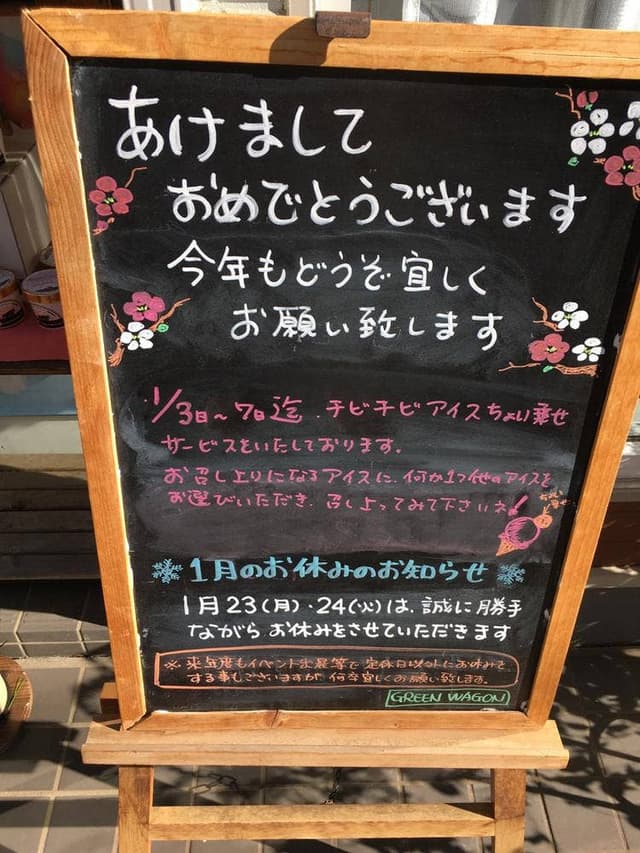 あけまして
おめでとうございます
今年もどうぞ宜しく
お願い致します
1/3日～7日迄、チビチビアイスちょい乗せ
サービスをいたしております。
お召し上りになるアイスに、何か1つ他のアイスを
お選びいただき、召し上ってみて下さいネ!
ちょい
乗せ
1月のお休みのお知らせ
1月23(月)・24(火)は、誠に勝手
ながら お休みをさせていただきます
※来年度もイベント出展等で定休日以外にお休みを
する事もございますが、何卒宜しくお願い致します。
GREEN WAGON